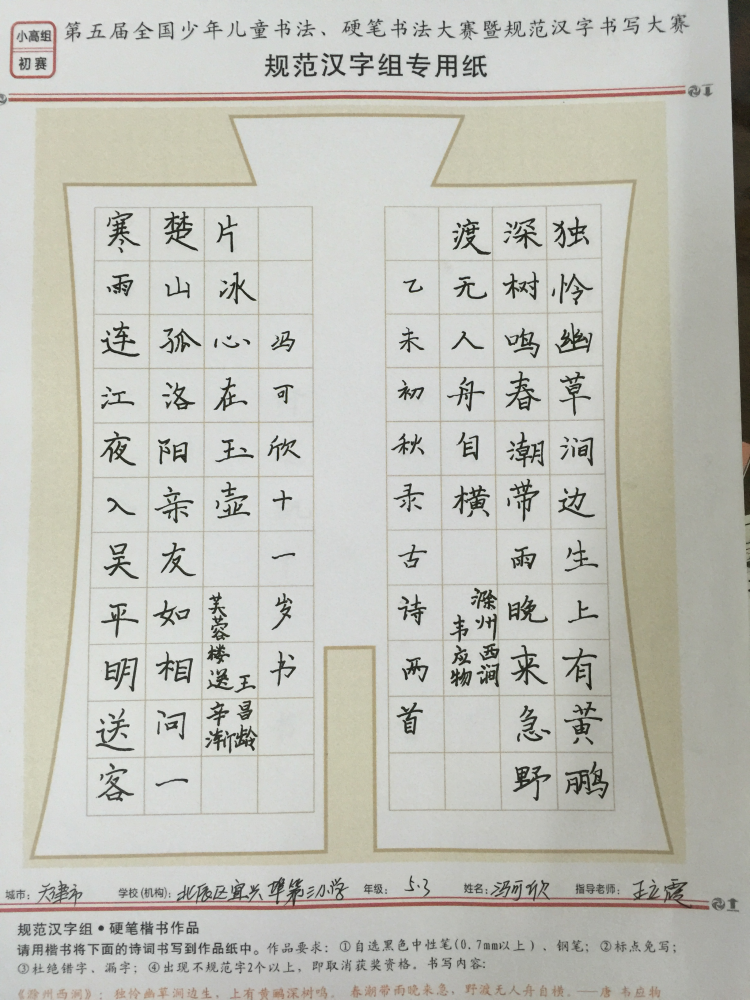 小高组
初赛
第五届全国少年儿童书法、硬笔书法大赛暨规范汉字书写大赛
规范汉字组专用纸
独怜幽草涧边生上有黄鹂
深树鸣春潮带雨晚来急野
渡无人舟自横
滁州西涧
韦应物
乙未初秋录古诗两首
寒雨连江夜入吴平明送客
楚山孤洛阳亲友如相问一
片冰心在玉壶
芙蓉楼送辛渐
王昌龄
冯可欣十一岁书
城市：天津市 学校(机构)：北辰区宜兴埠第三小学 年级：5.3 姓名：冯可欣 指导老师：王立霞
规范汉字组•硬笔楷书作品
请用楷书将下面的诗词书写到作品纸中。作品要求：①自选黑色中性笔(0.7mm以上)、钢笔；②标点免写；
③杜绝错字、漏字；④出现不规范字2个以上，即取消获奖资格。书写内容：
《滁州西涧》：独怜幽草涧边生，上有黄鹂深树鸣。春潮带雨晚来急，野渡无人舟自横。——唐 韦应物